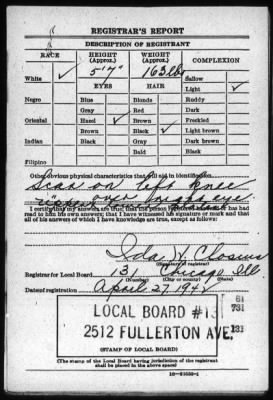 REGISTRAR'S REPORT
DESCRIPTION OF REGISTRANT
RACE HEIGHT (Approx.) WEIGHT (Approx.) COMPLEXION
White ✓ 5'7" 163 lb Sallow
EYES HAIR Light ✓
Negro Blue Blonde Ruddy
Gray Red Dark
Oriental Hazel ✓ Brown Freckled
Brown Black ✓ Light brown
Indian Black Gray Dark brown
Bald Black
Filipino
Other obvious physical characteristics that will aid in identification
Scar on left knee
" over right eye
I certify that my answers are true; that the person registered has read or has had
read to him his own answers; that I have witnessed his signature or mark and that
all of his answers of which I have knowledge are true, except as follows:
Ida H.
(Signature of registrar)
Registrar for Local Board 131 Chicago Ill
(Number) (City or county) (State)
Date of registration April 27 1942
LOCAL BOARD #131 61
731
2512 FULLERTON AVE. 131
(STAMP OF LOCAL BOARD)
(The stamp of the Local Board having jurisdiction of the registrant
shall be placed in the above space)